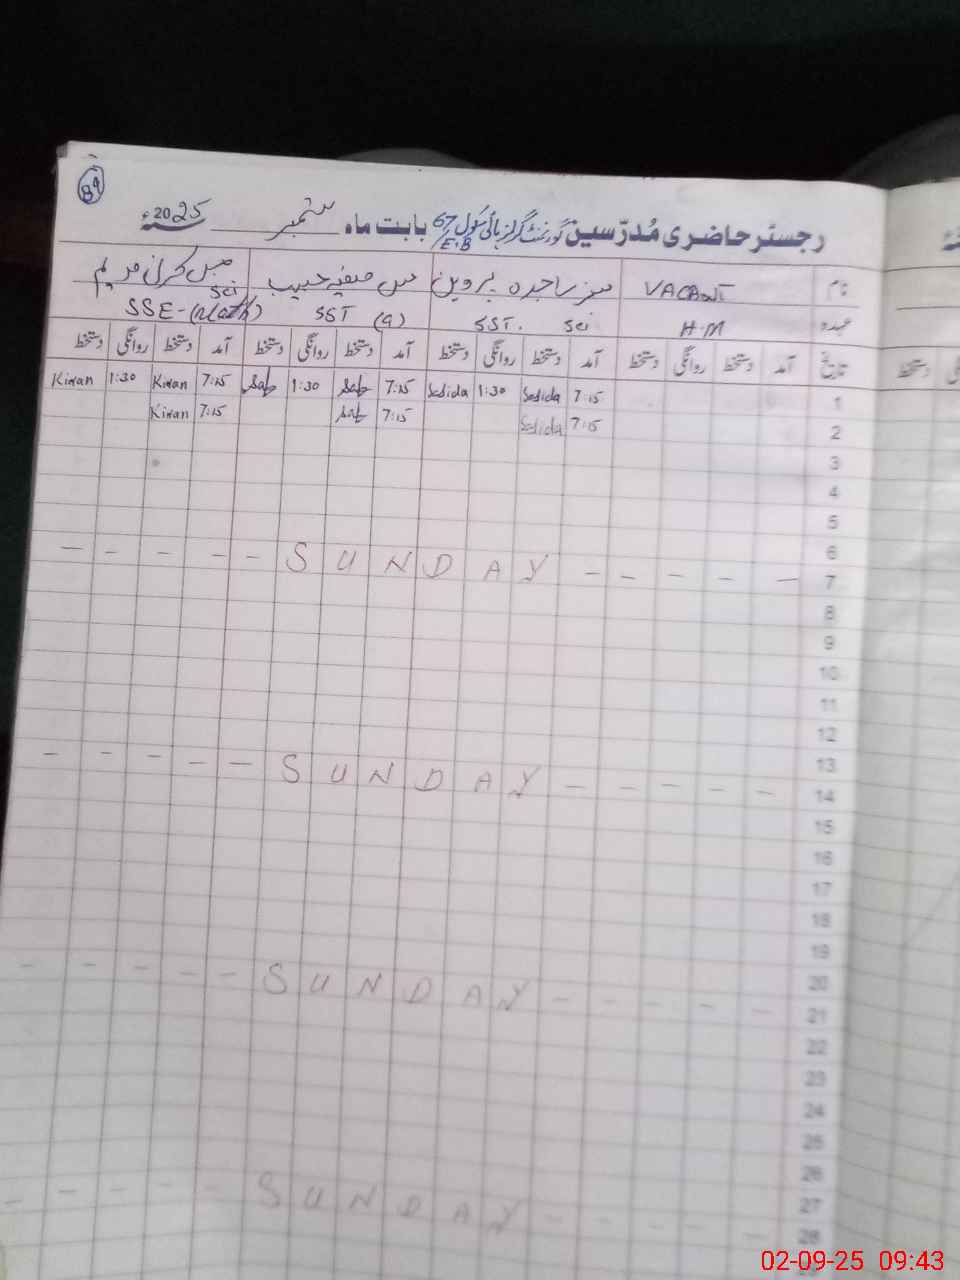 89
رجسٹر حاضری مُدرّسین گورنمنٹ گرلز ہائی سکول 67/E.B بابت ماہ ستمبر 2025ء
نام VACANT مسز ساجدہ پروین مس صفیہ حبیب مس کرن مریم
عہدہ H.M SST. Sci SST (G) SSE-(Math) Sci
تاریخ آمد دستخط روانگی دستخط آمد دستخط روانگی دستخط آمد دستخط روانگی دستخط آمد دستخط روانگی دستخط
1 7:15 Sajida 1:30 Sajida 7:15 1:30 7:15 Kiran 1:30 Kiran
2 7:15 Sajida 7:15 7:15 Kiran
3
4
5
6
7 - - - - - SUNDAY - - - - -
8
9
10
11
12
13
14 - - - - - SUNDAY - - - - -
15
16
17
18
19
20
21 - - - - - SUNDAY - - - - -
22
23
24
25
26
27
28 - - - - SUNDAY - - - - -
دستخط
02-09-25 09:43